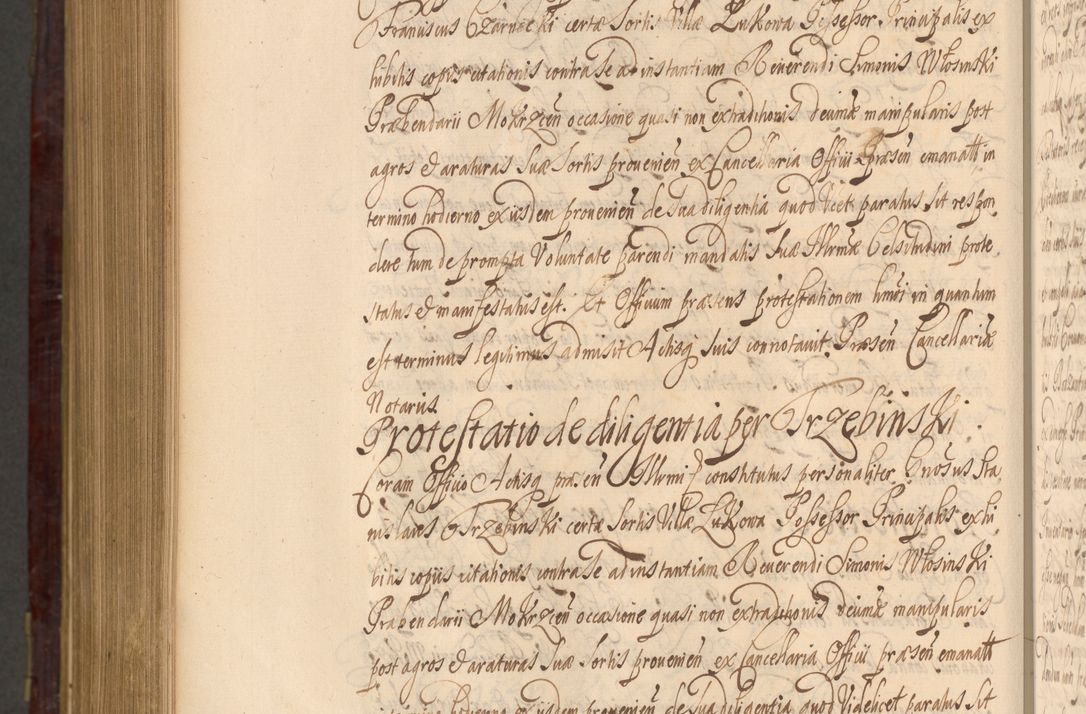 Franciscus Czarnecki certæ Sortis Villæ Zukowa Possessor Principalis ex
hibitis copiis citationis contra se ad instantiam Reverendi Simonis Włosinski
Præbendarii Mokrzcen̄ occasione quasi non extraditionis decimæ manipularis post
agros et araturas suæ Sortis provenien̄ ex Cancellaria Officii Præsen̄ emanatt in
termino hodierno exiisdem provenien̄ de sua diligentia quod vcet paratus sit respon
dere tum de prompta Voluntate parendi mandatis suæ Illrmæ Celsitudini prote
status et manifestatus est. Et Officium præsens protestationem hmōi in quantum
est terminus legitimus admisit Actisq suis connotavit. Præsen̄ Cancellariæ
Notarius
Protestatio de diligentia per Trzebinski
Coram Officio Actisq præsen̄ Illrmi constitutus personaliter Gnōsus Sta
nislaus Trzebinski certæ Sortis Villæ Zukowa Possessor Principalis exhi
bitis copiis citationis contra se ad instantiam Reverendi Simonis Włosinski
Præbendarii Mokrzcen̄ occasione quasi non extraditionis decimæ manipularis
post agros et araturas suæ Sortis provenien̄ ex Cancellaria Officii præsen̄ emanatt
termino hodierno exiisdem provenien̄ de sua diligentia quod Videlicet paratus sit